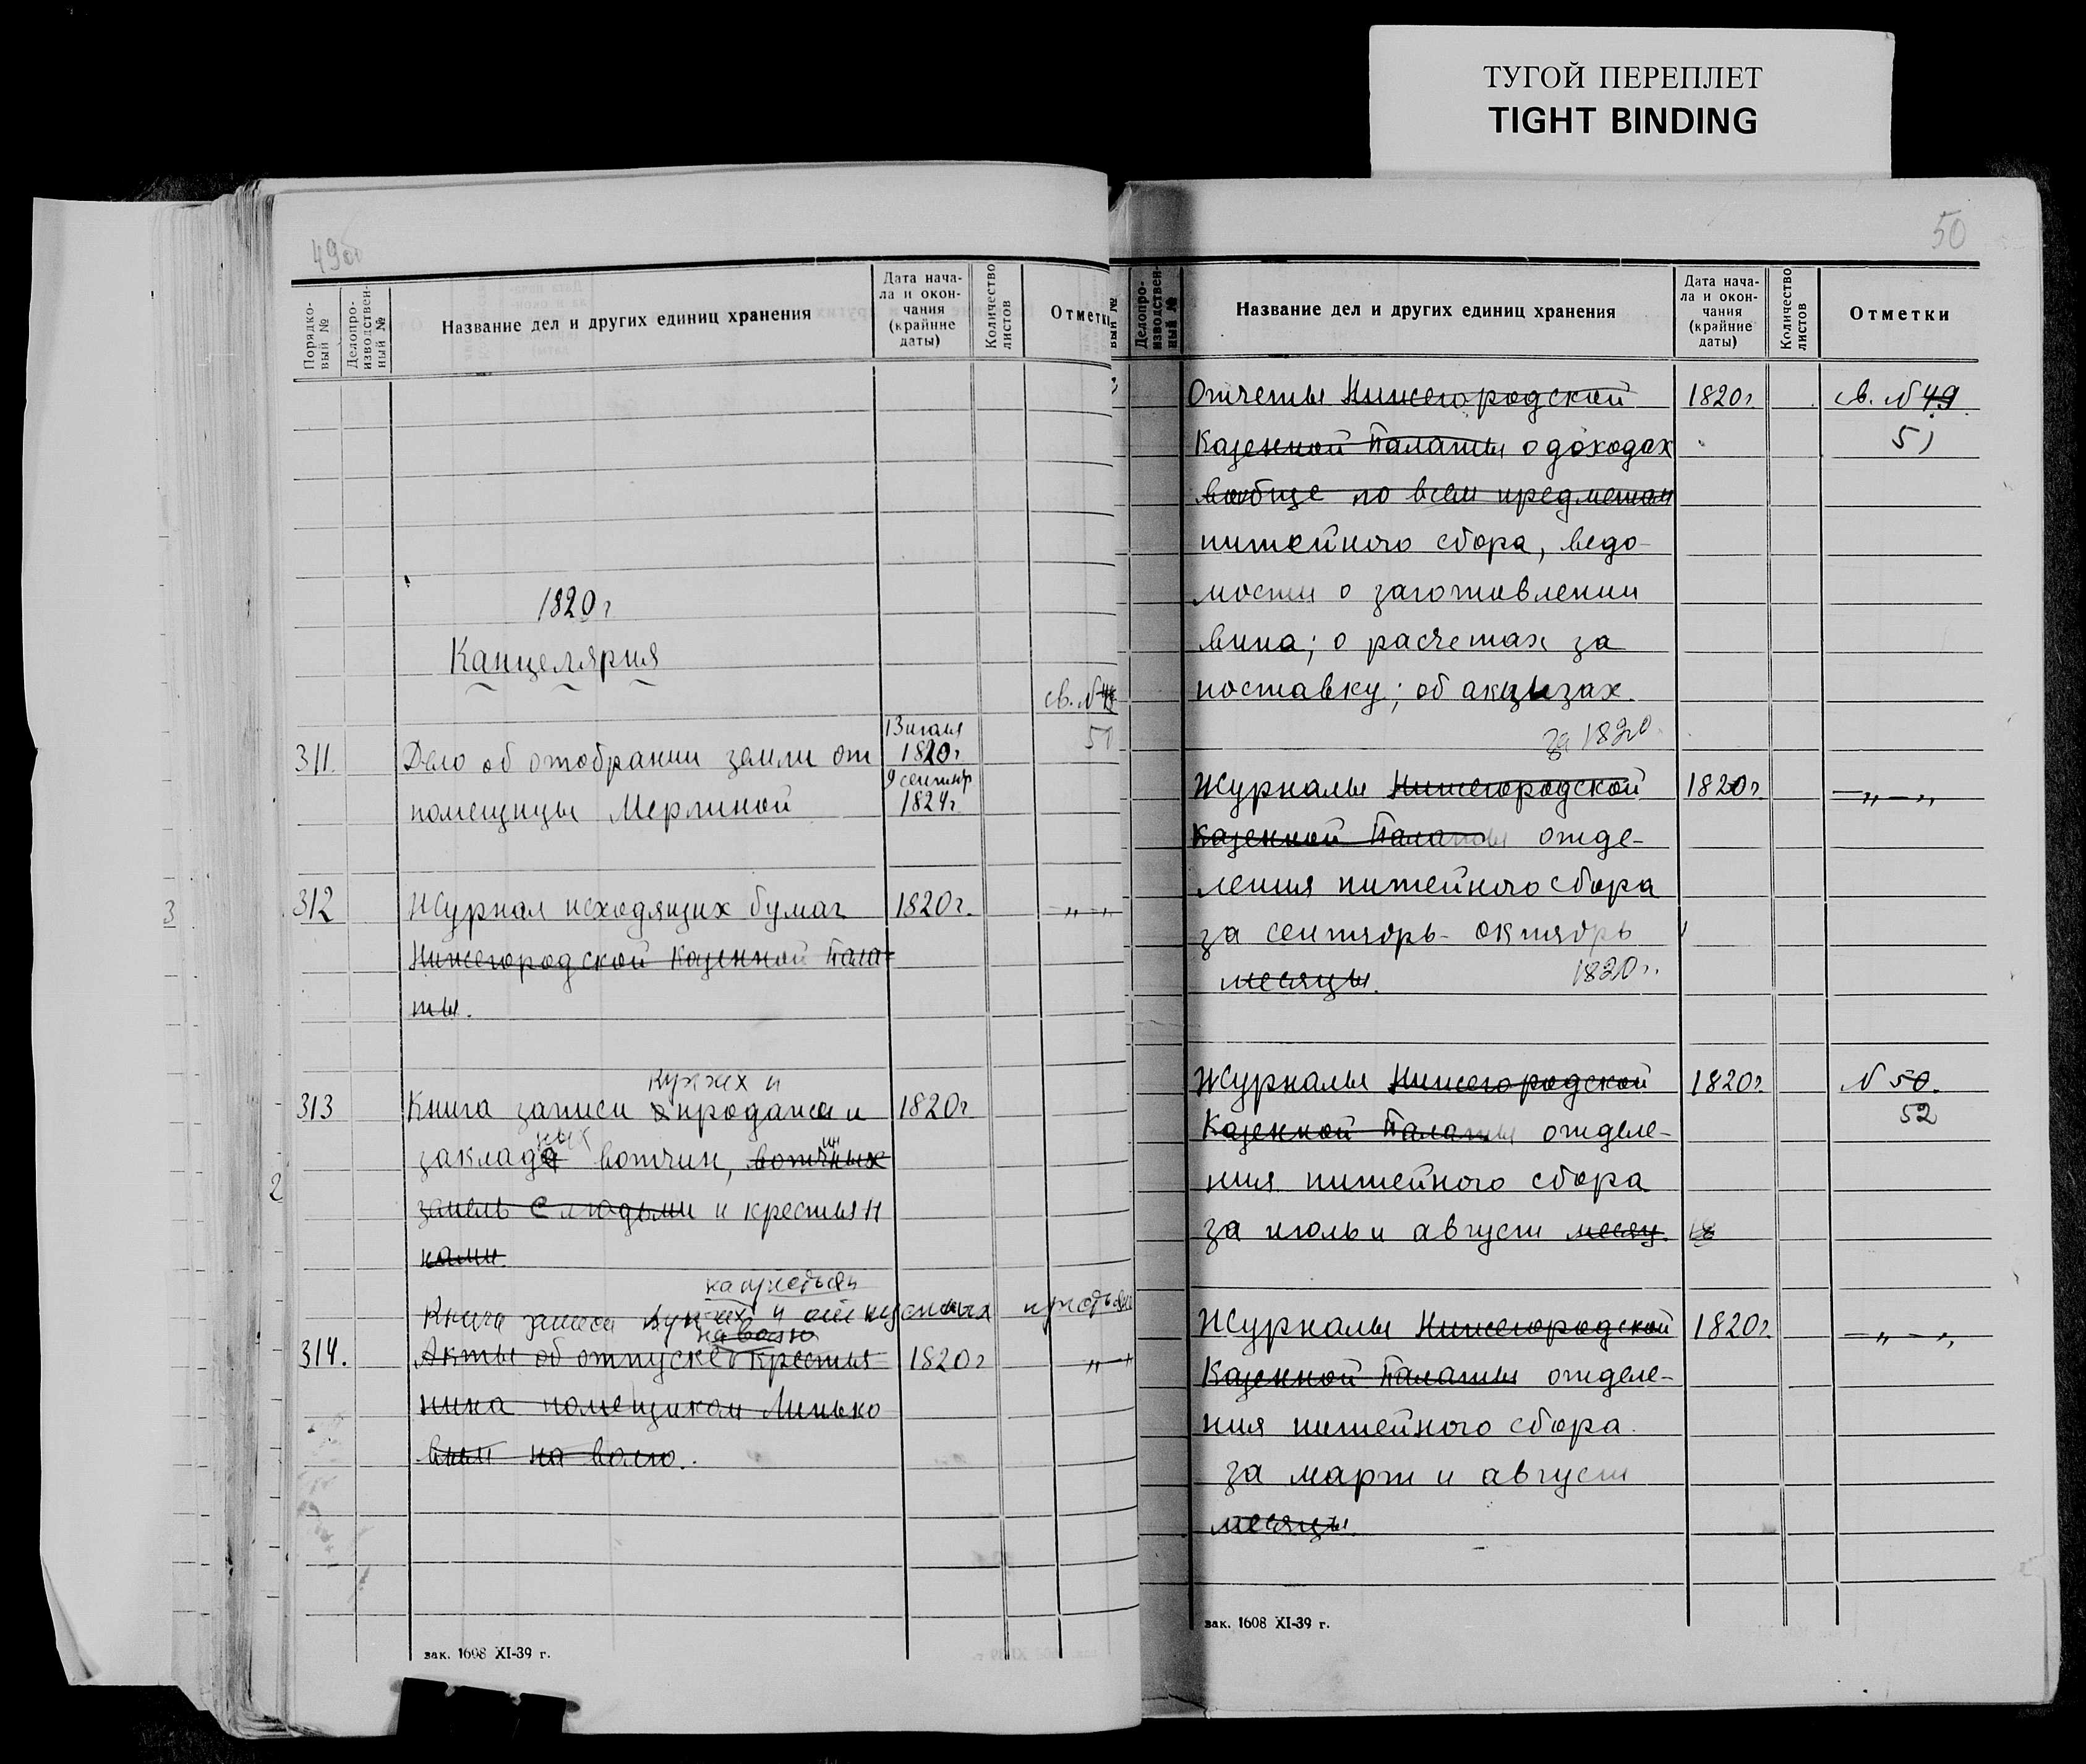 ТУГОЙ ПЕРЕПЛЕТ
TIGHT BINDING
49об
Порядко-
вый №
Делопро-
изводствен-
ный №
Название дел и других единиц хранения
Дата нача-
ла и окон-
чания
(крайние
даты)
Количество
листов
Отметки
1820г
Канцелярия
св. №
50
13 июля
311. Дело об отобрании земли от 1820г.
9 сентябр
помещицы Мерлиной 1824г.
312 Журнал исходящих бумаг 1820г. —„—„
Нижегородской Казенной Пала-
ты.
купчих и
313 Книга записи продажи и 1820г
ных
заклада вотчин, вотчинных
земель с людьми и крестьян
нами.
на крестьян
Книга записи купчих и отпускных крестьян
на волю
314. Акты об отпуске крестья- 1820г —„—
нина помещиком Минько
вым на волю.
зак. 1608 XI-39 г.
50
вый №
Делопро-
изводствен-
ный №
Название дел и других единиц хранения
Дата нача-
ла и окон-
чания
(крайние
даты)
Количество
листов
Отметки
Отчеты Нижегородской 1820г. св. № 49
Казенной Палаты о доходах 51
вообще по всем предметам
питейного сбора, ведо-
мости о заготовлении
вина; о расчетах за
поставку; об акцизах.
за 1820.
Журналы Нижегородской 1820г. —„—„
Казенной Палаты отде-
ления питейного сбора
за сентябрь- октябрь
месяцы. 1820г.
Журналы Нижегородской 1820г. № 50.
Казенной Палаты отделе- 52
ния питейного сбора
за июль и август месяц. 18
Журналы Нижегородской 1820г. —„—„
Казенной Палаты отделе-
ния питейного сбора.
за март и август
месяцы.
зак. 1608 XI-39 г.